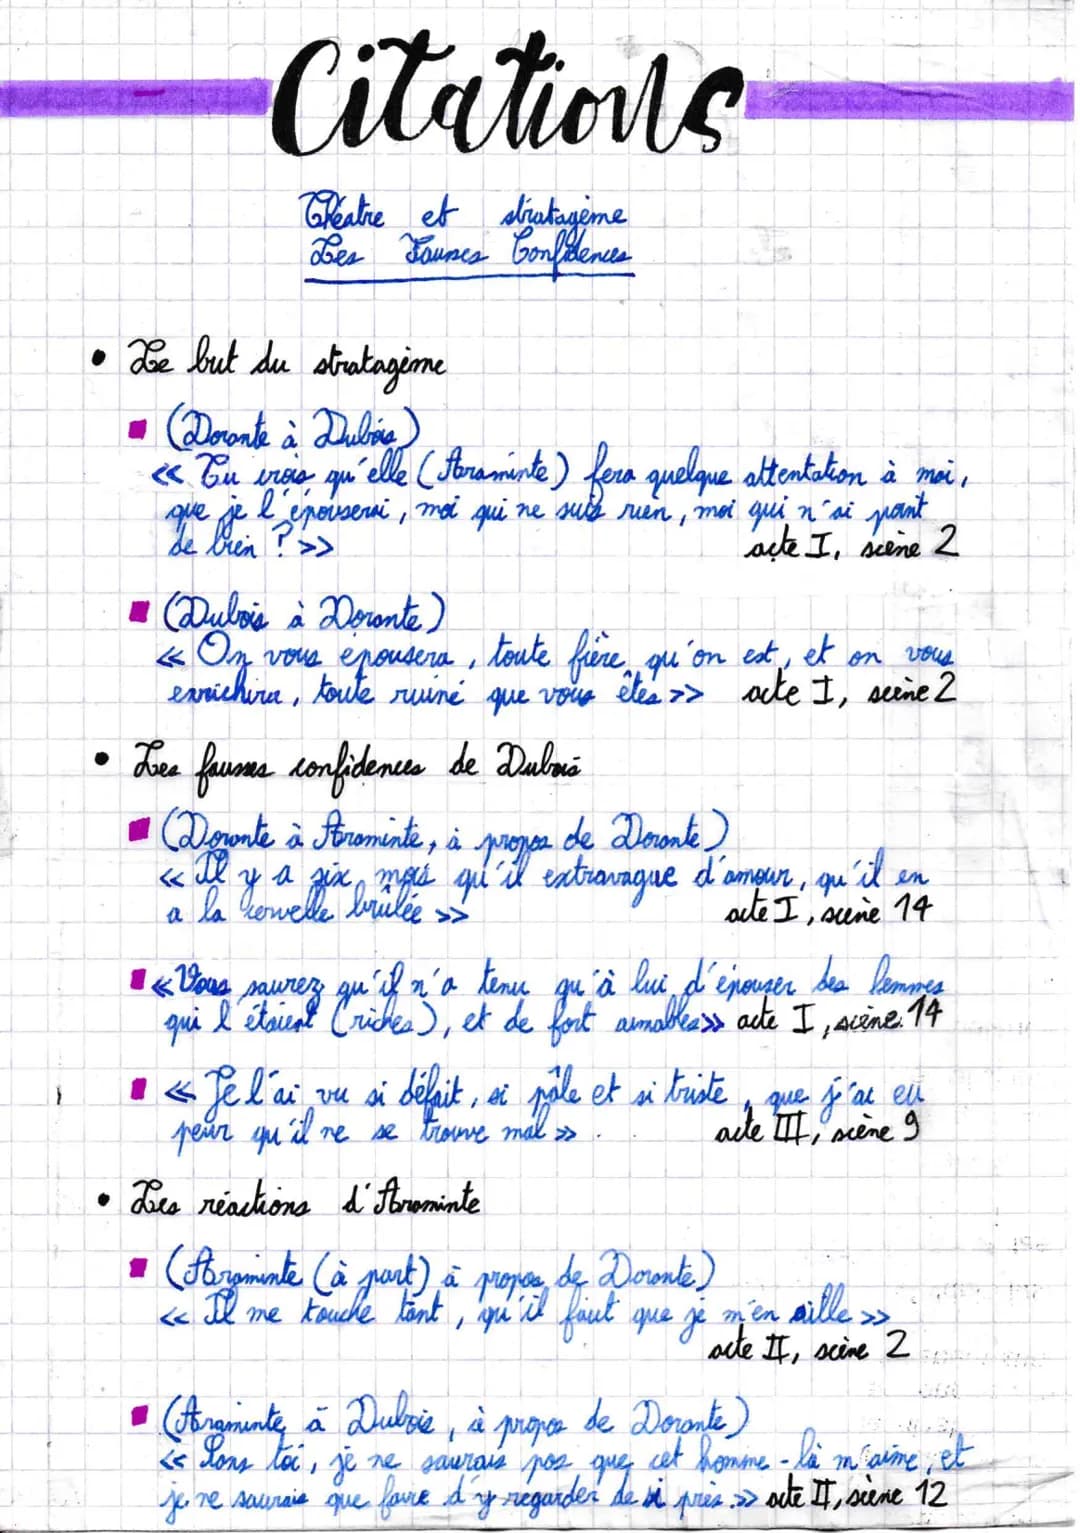 Citations
Théatre et stratagème
Les Fausses Confidences
• Le but du stratagème
(Dorante à Dubois)
« Tu crois qu'elle (Araminte) fera quelque attention à moi,
que je l'épouserai, moi qui ne suis rien, moi qui n'ai point
de bien ? »
acte I, scène 2
(Dubois à Dorante)
« On vous épousera, toute fière qu'on est, et on vous
enrichira, toute ruiné que vous êtes » acte I, scène 2
• Les fausses confidences de Dubois
(Dorante à Araminte, à propos de Dorante)
« Il y a six mois qu'il extravague d'amour, qu'il en
a la cervelle brûlée »
acte I, scène 14
« Vous saurez qu'il n'a tenu qu'à lui d'épouser des femmes
qui l'étaient (riches), et de fort aimables » acte I, scène 14
« Je l'ai vu si défait, si pâle et si triste, que j'ai eu
peur qu'il ne se trouve mal ».
acte III, scène 9
• Les réactions d'Araminte
(Araminte (à part) à propos de Dorante)
« Il me touche tant, qu'il faut que je m'en aille »
acte II, scène 2
(Araminte à Dubois, à propos de Dorante)
« Sans toi, je ne saurais pas que cet homme-là m'aime, et
je ne saurais que faire d'y regarder de si près. » acte II, scène 12